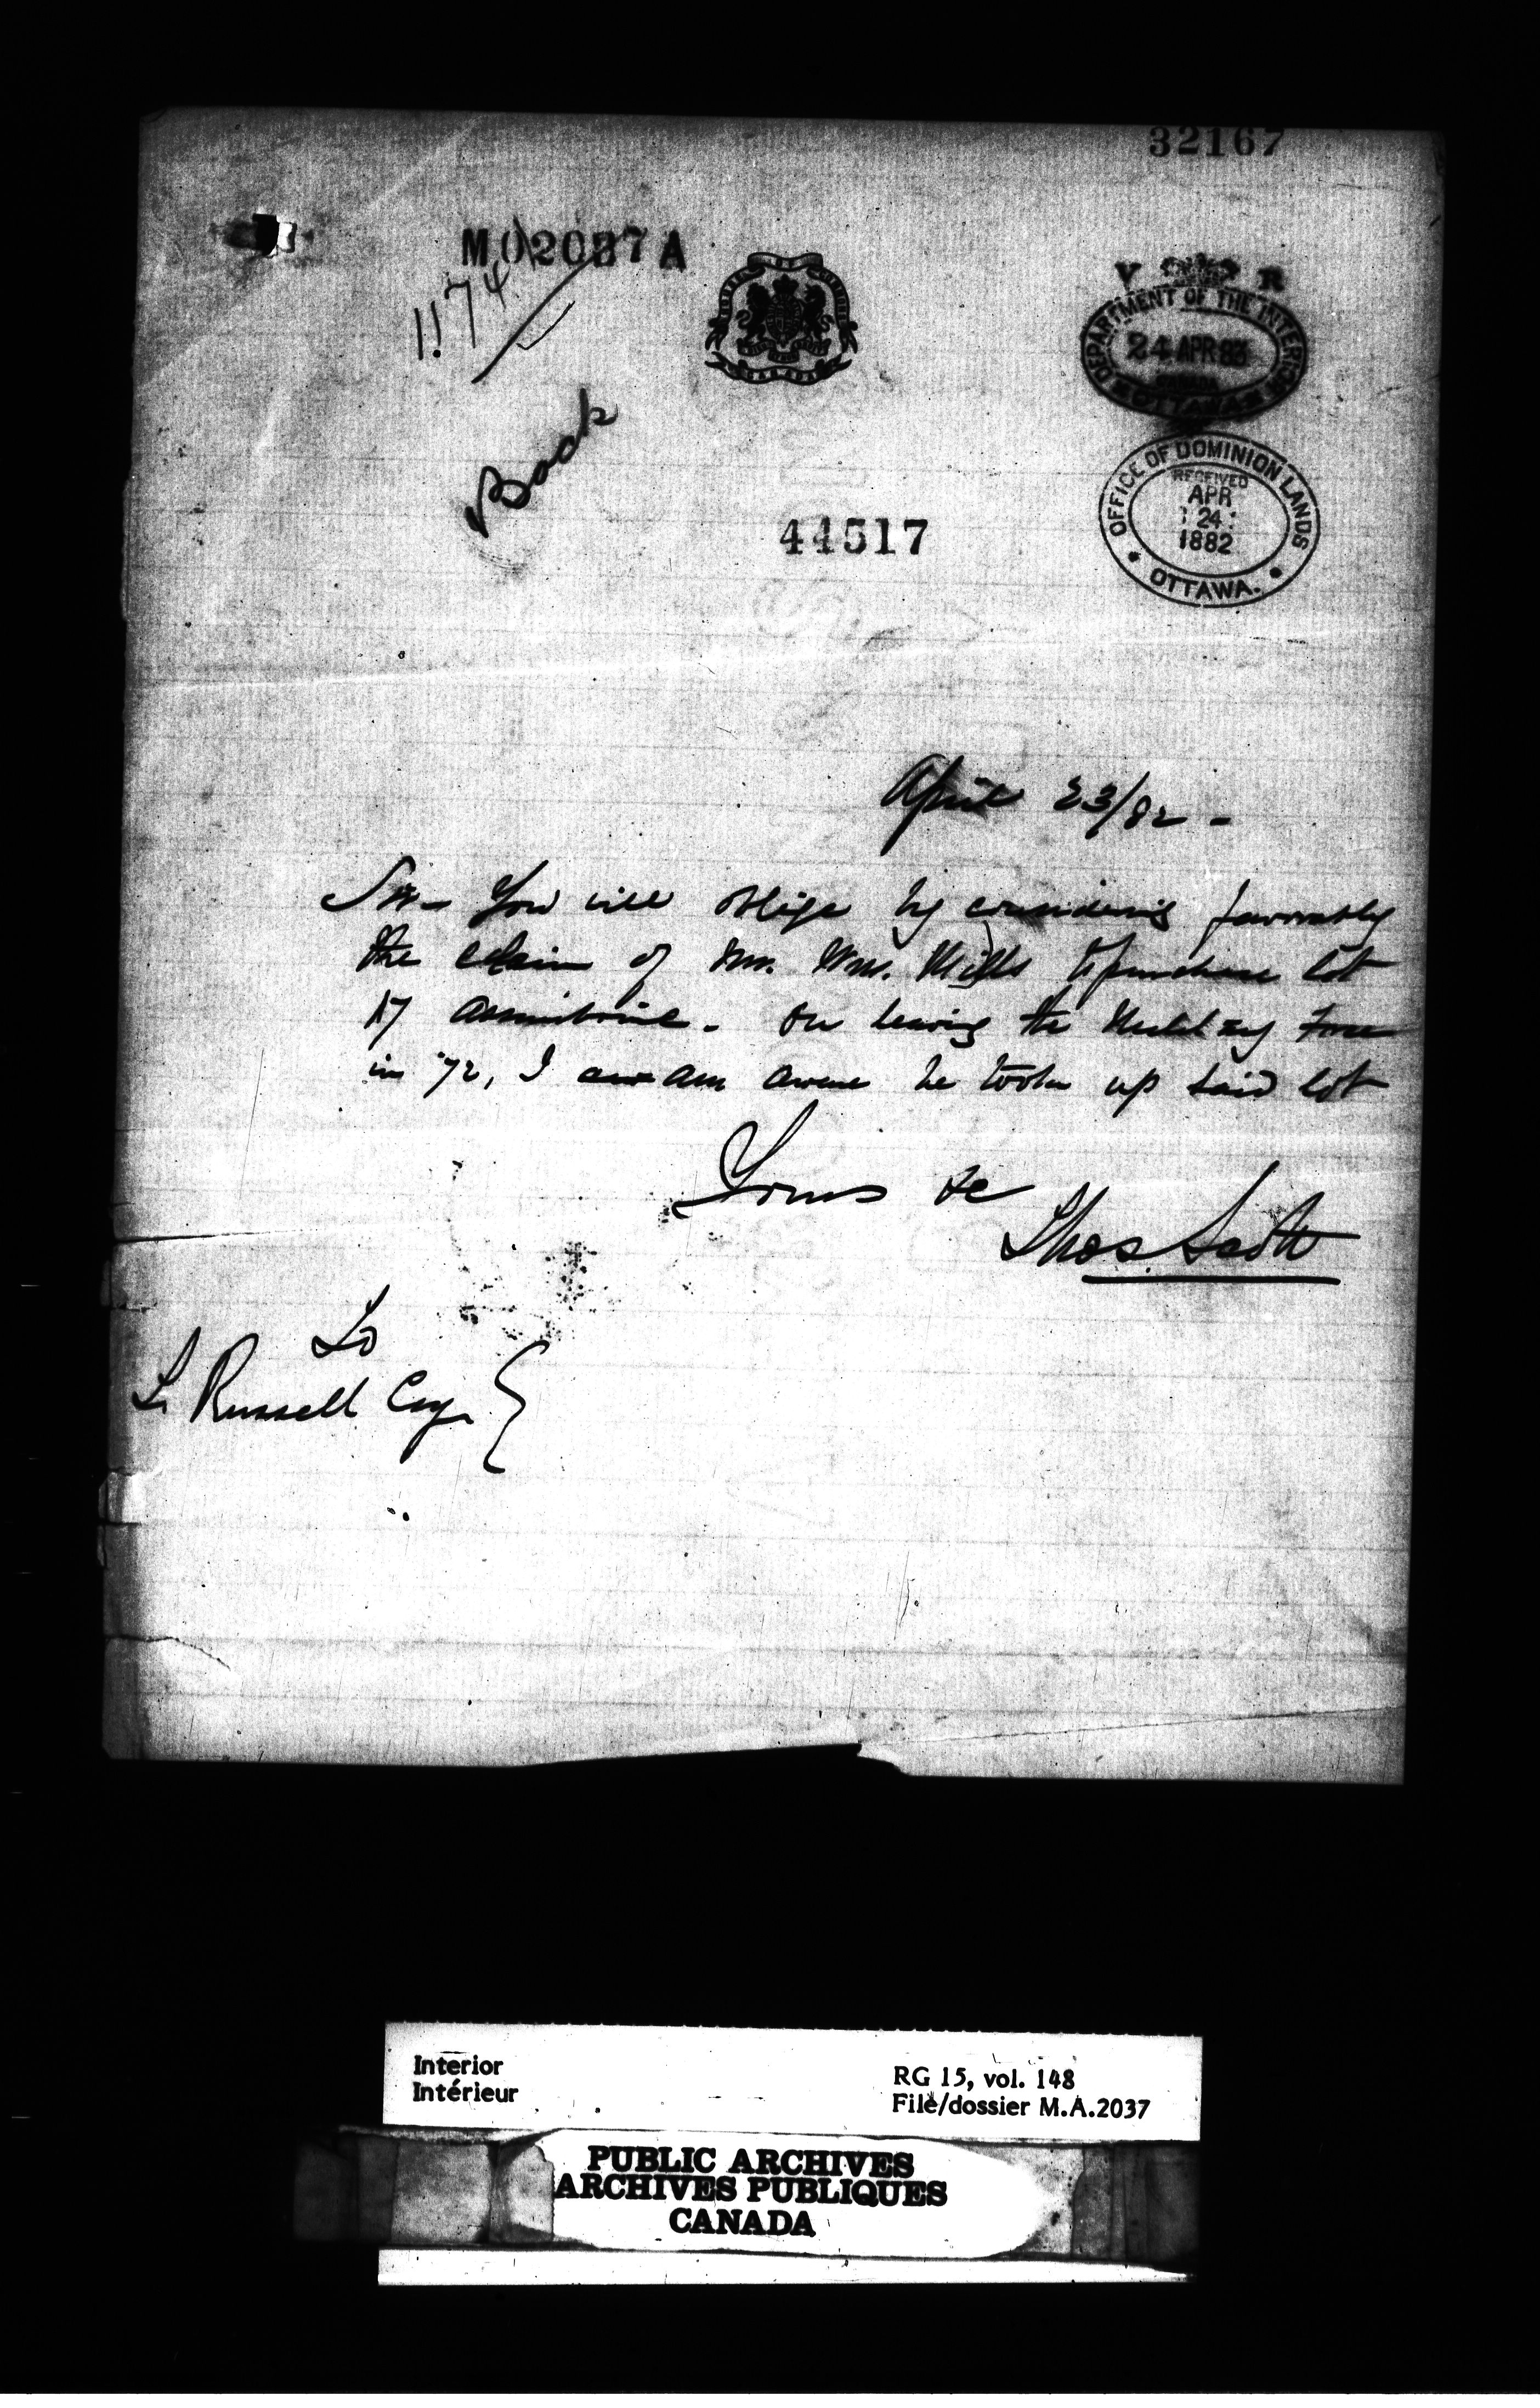 32167
M 02037 A
1174
V R
DEPARTMENT OF THE INTERIOR
24 APR 83
CANADA
OTTAWA
Book
OFFICE OF DOMINION LANDS
RECEIVED
APR
24
1882
OTTAWA.
44517
April 23/82 -
Sir - You will oblige by considering favorably
the claim of Mr. Wm. Mills to purchase lot
17 Assiniboine. On leaving the Military Force
in '72, I am aware he took up said lot
Yours &c
Thos. Scott
To
L. Russell Esq.
Interior
Intérieur
RG 15, vol. 148
File/dossier M.A.2037
PUBLIC ARCHIVES
ARCHIVES PUBLIQUES
CANADA